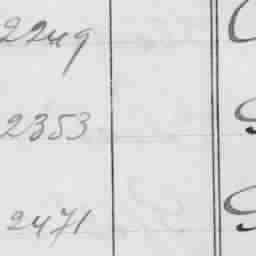 2249
2353
2471